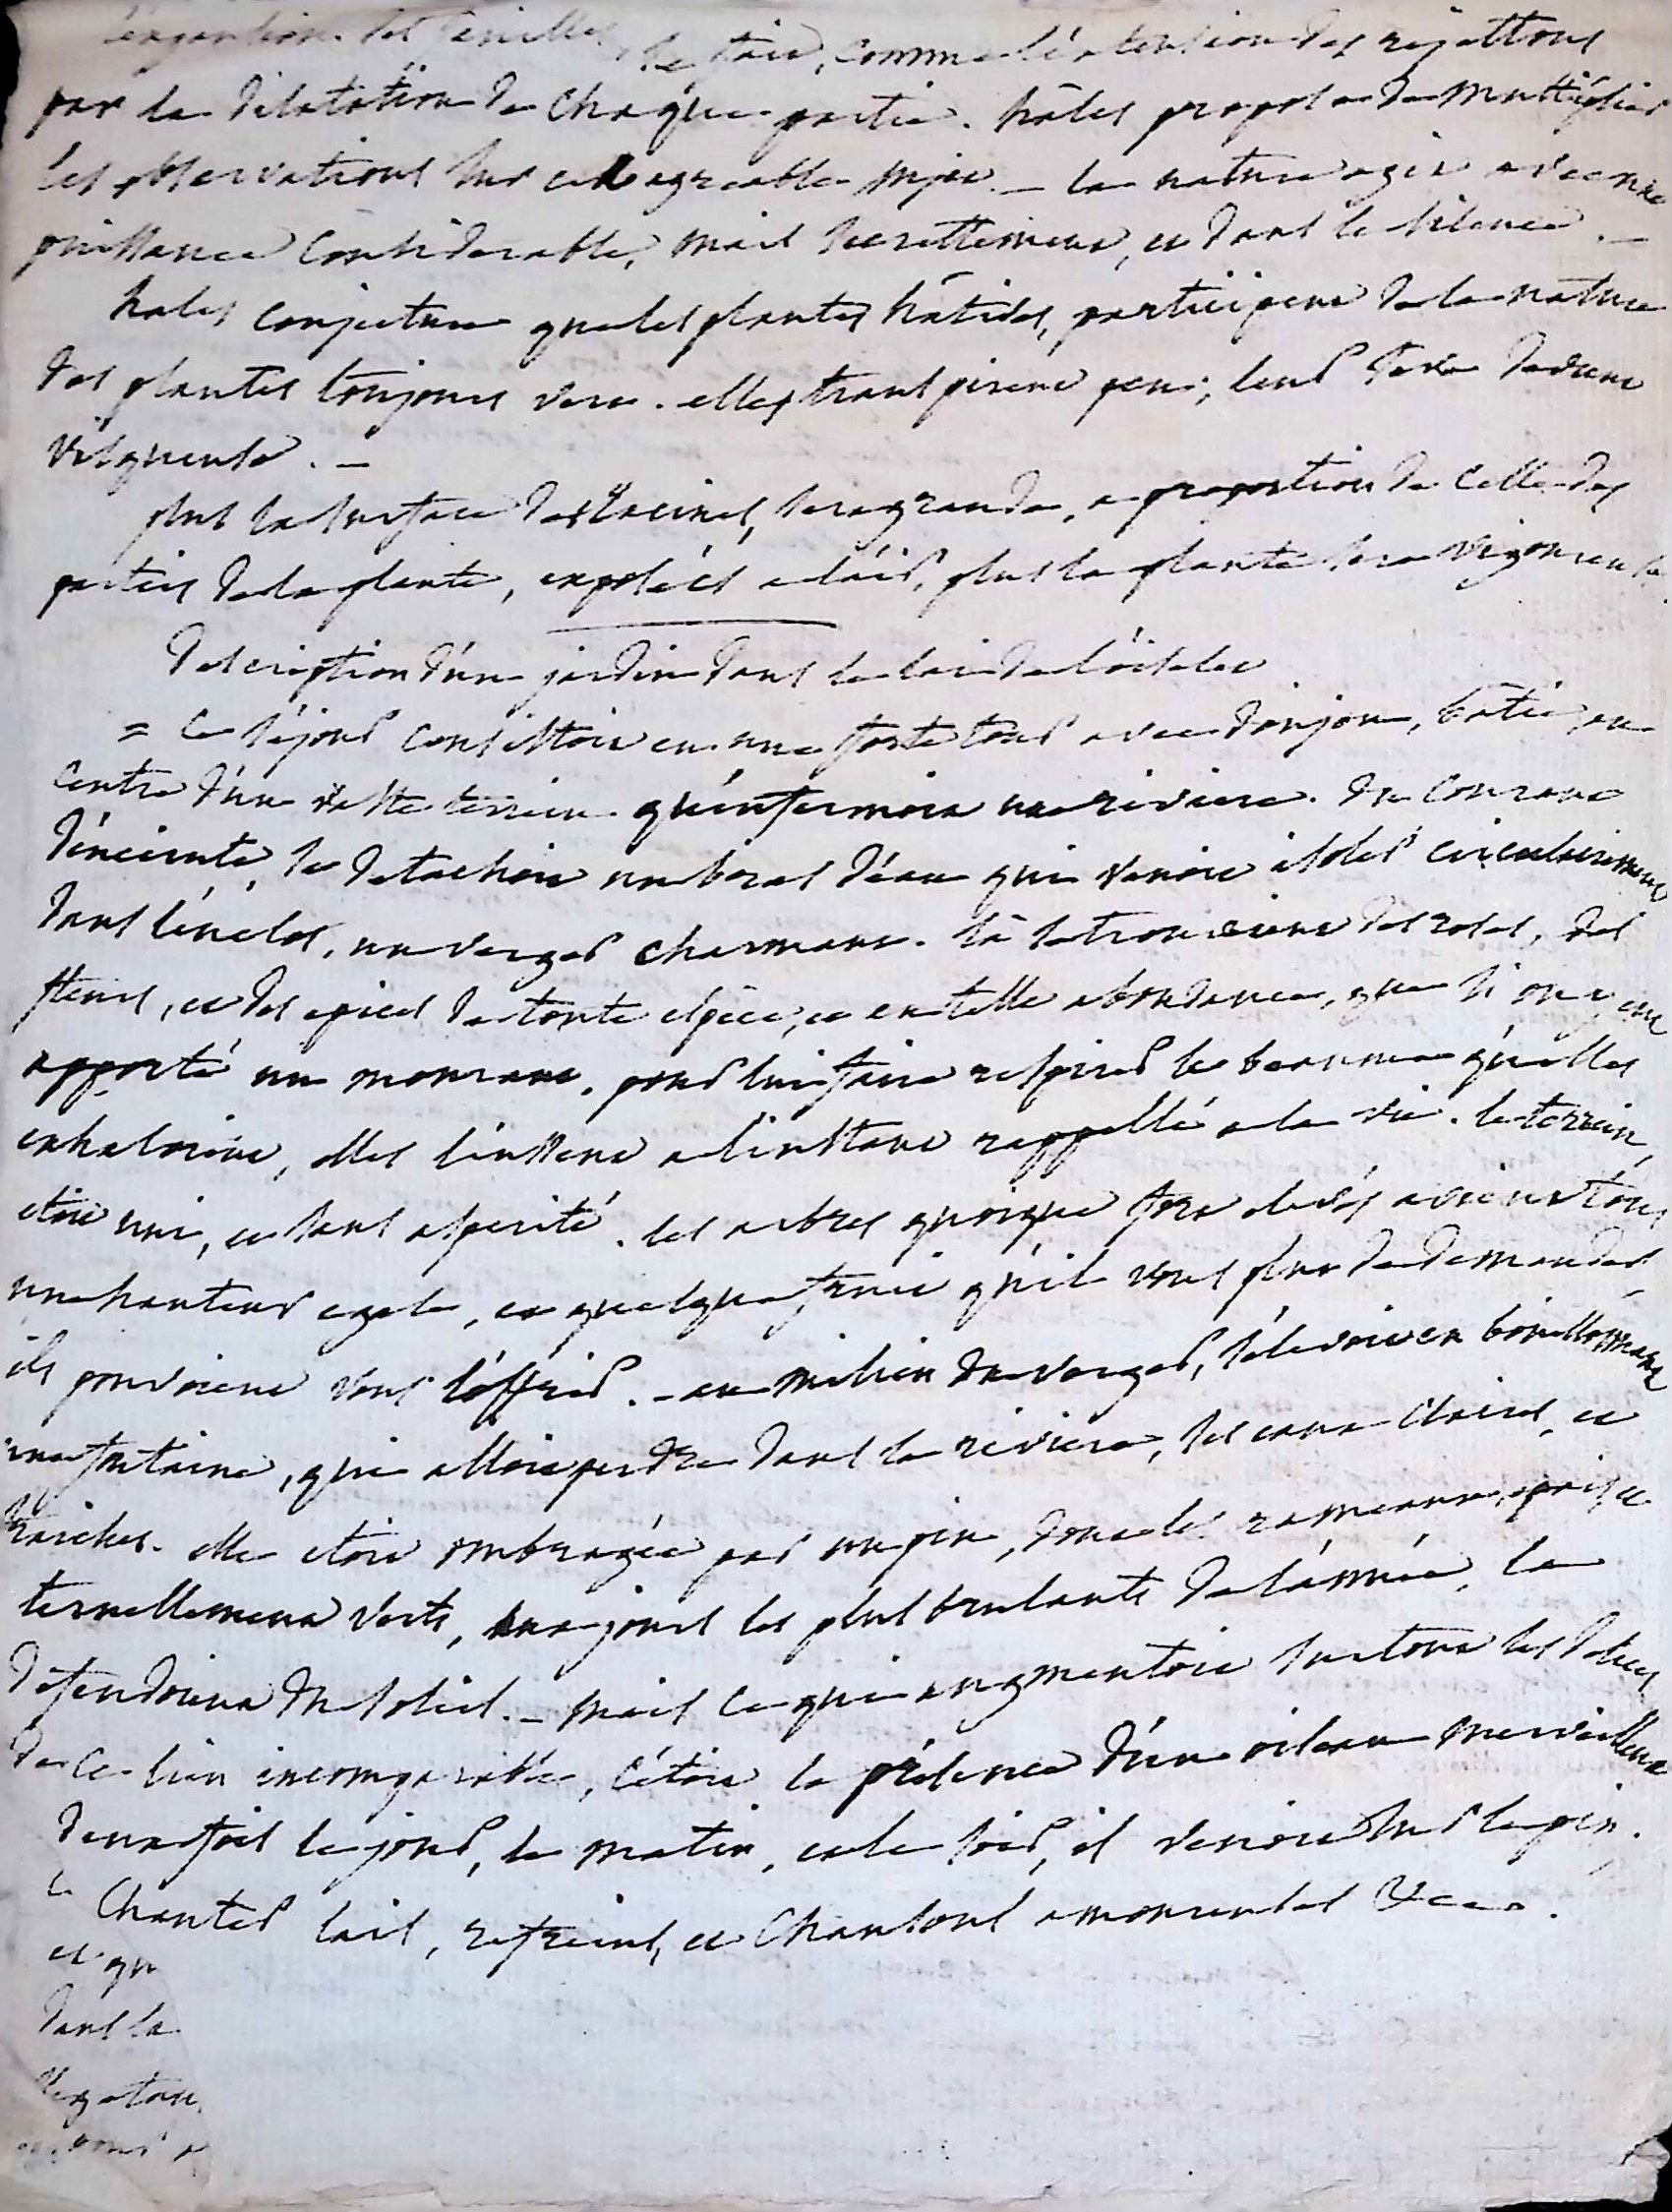 l'expantion des feuilles se fait, comme l'éxtension des rejettons
par la dilatation de chaque partie. hâles propose de multiplier
les observations sur cet agreable sujet. – la nature agit avec une
puissance considerable, mais secrettement, et dans le silence. –
hales conjecture que les plantes hâtives, participent de la nature
des plantes toujours vert. elles transpirent peu; leur seve devient
visqueuse. –
plus la surface des racines, sera grande, a proportion de celle des
parties de la plante, exposées a l'air, plus la plante sera vigoureuse.
description d'un jardin dans le lai de l'oiselet
= ce séjour consistoit en une forte tour avec donjon, batie, au
centre d'un vaste terrein qu'enfermoit une riviere. du courant
d'enceinte, se detachoit un bras d'eau qui venoit isoler circulairement
dans l'enclos, un verger charmant. là se trouvoient des roses, des
fleurs, et des epices de toute espèce, et en telle abondance, que si on y eut
apporté un mourant, pour lui faire respirer le beaume qu'elles
exhaloient, elles l'eussent a l'instant rappellé a la vie. le terrein,
etoit uni, et sans asperité. les arbres quoique fort elevés avoient tous
une hauteur egale, et quelque fruit qu'il vous plut de demander
ils pouvoient vous l'offrir. – au milieu du verger, s'elevoit en bouillonnant
une fontaine, qui alloit perdre dans la riviere, ses eaux claires, et
fraiches. elle etoit ombragée par un pin, dont les rameaux, epais, et
ternellement verts, aux jours les plus brulants de l'année, la
defendoient du soleil. – mais ce qui augmentoit surtout les delices
de ce lieu incomparable, c'étoit la présence d'un oiseau merveilleux
deux fois le jour, le matin, et le soir, il venoit sur le pin,
chanter lais, refreins, et chansons amoureuses &c.
et qu
dans la